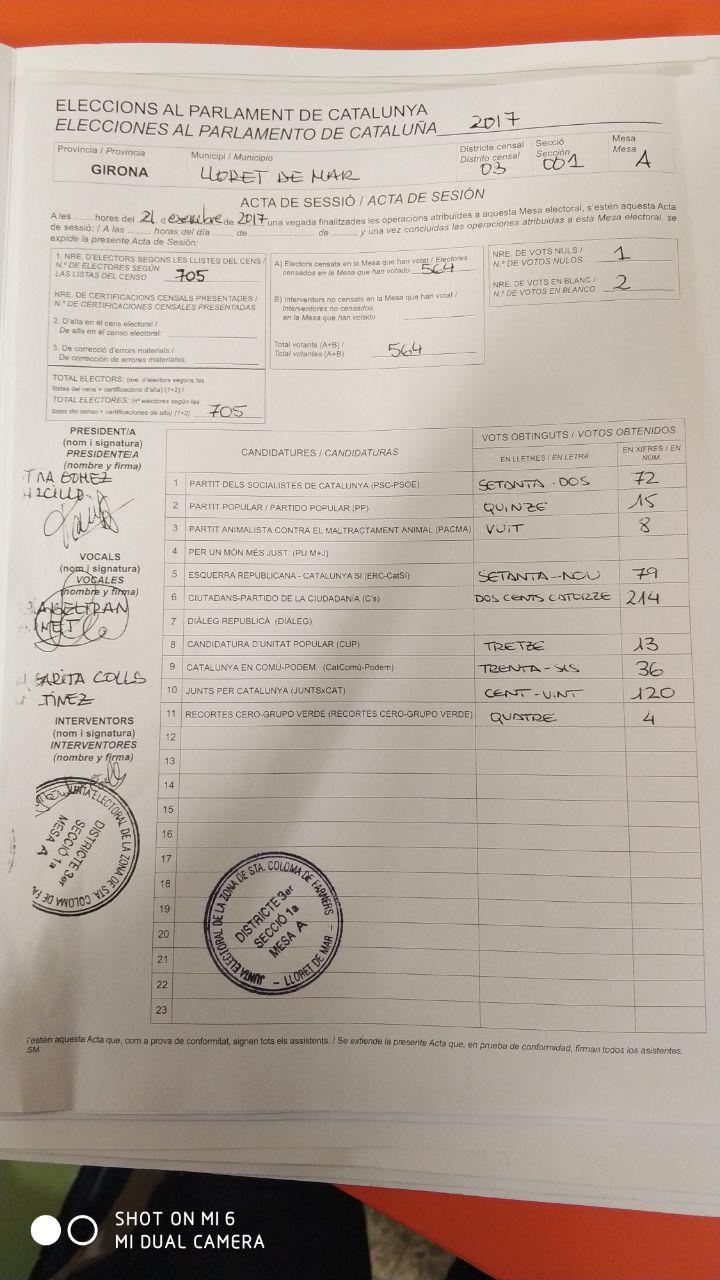 ELECCIONS AL PARLAMENT DE CATALUNYA
ELECCIONES AL PARLAMENTO DE CATALUÑA 2017
Província / Provincia
GIRONA
Municipi / Municipio
LLORET DE MAR
Districte censal
Distrito censal
03
Secció
Sección
001
Mesa
Mesa
A
ACTA DE SESSIÓ / ACTA DE SESIÓN
A les ........ hores del 21 d desembre de 2017, una vegada finalitzades les operacions atribuïdes a aquesta Mesa electoral, s'estén aquesta Acta
de sessió: / A las ......... horas del día ....... de .................... de ........, y una vez concluidas las operaciones atribuidas a esta Mesa electoral, se
expide la presente Acta de Sesión:
1. NRE. D'ELECTORS SEGONS LES LLISTES DEL CENS /
N.º DE ELECTORES SEGÚN
LAS LISTAS DEL CENSO 705
NRE. DE CERTIFICACIONS CENSALS PRESENTADES /
N.º DE CERTIFICACIONES CENSALES PRESENTADAS
2. D'alta en el cens electoral /
De alta en el censo electoral:
3. De correcció d'errors materials /
De corrección de errores materiales:
TOTAL ELECTORS: (nre. d'electors segons les
llistes del cens + certificacions d'alta) (1+2) /
TOTAL ELECTORES: (nº electores según las
listas del censo + certificaciones de alta) (1+2) 705
A) Electors censats en la Mesa que han votat / Electores
censados en la Mesa que han votado 564
B) Interventors no censats en la Mesa que han votat /
Interventores no censados
en la Mesa que han votado
Total votants (A+B) /
Total votantes (A+B) 564
NRE. DE VOTS NULS /
N.º DE VOTOS NULOS 1
NRE. DE VOTS EN BLANC /
N.º DE VOTOS EN BLANCO 2
PRESIDENT/A
(nom i signatura)
PRESIDENTE/A
(nombre y firma)
GOMEZ
VOCALS
(nom i signatura)
VOCALES
(nombre y firma)
COLLS
INTERVENTORS
(nom i signatura)
INTERVENTORES
(nombre y firma)
CANDIDATURES / CANDIDATURAS
VOTS OBTINGUTS / VOTOS OBTENIDOS
EN LLETRES / EN LETRA
EN XIFRES / EN NÚM.
1 PARTIT DELS SOCIALISTES DE CATALUNYA (PSC-PSOE) SETANTA-DOS 72
2 PARTIT POPULAR / PARTIDO POPULAR (PP) QUINZE 15
3 PARTIT ANIMALISTA CONTRA EL MALTRACTAMENT ANIMAL (PACMA) VUIT 8
4 PER UN MÓN MÉS JUST (PU M+J)
5 ESQUERRA REPUBLICANA - CATALUNYA SÍ (ERC-CatSí) SETANTA-NOU 79
6 CIUTADANS-PARTIDO DE LA CIUDADANÍA (C's) DOS CENTS CATORZE 214
7 DIÀLEG REPUBLICÀ (DIÀLEG)
8 CANDIDATURA D'UNITAT POPULAR (CUP) TRETZE 13
9 CATALUNYA EN COMÚ-PODEM (CatComú-Podem) TRENTA-SIS 36
10 JUNTS PER CATALUNYA (JUNTSxCAT) CENT-VINT 120
11 RECORTES CERO-GRUPO VERDE (RECORTES CERO-GRUPO VERDE) QUATRE 4
12
13
14
15
16
17
18
19
20
21
22
23
JUNTA ELECTORAL DE LA ZONA DE STA. COLOMA DE FA
DISTRICTE 3er
SECCIÓ 1a
MESA A
JUNTA ELECTORAL DE LA ZONA DE STA. COLOMA DE FARNERS
DISTRICTE 3er
SECCIÓ 1a
MESA A
- LLORET DE MAR -
s'estén aquesta Acta que, com a prova de conformitat, signen tots els assistents. / Se extiende la presente Acta que, en prueba de conformidad, firman todos los asistentes.
.SM
SHOT ON MI 6
MI DUAL CAMERA